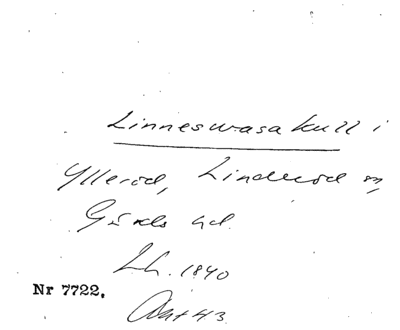 Linneswasakull i
Ylleröd, Linderöd sn,
Gärds hd.
Lh. 1840
Akt 43.
Nr 7722.